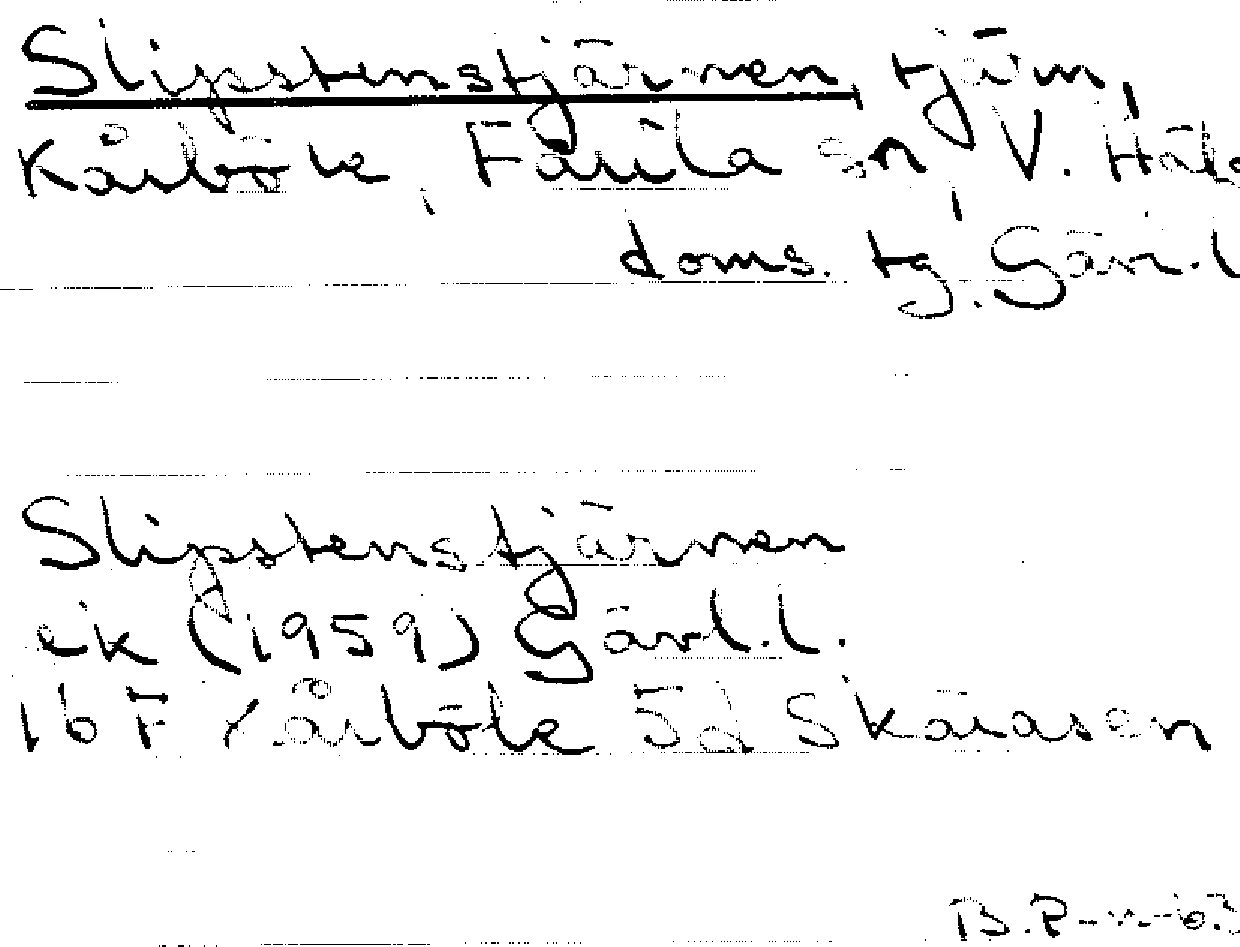 Slipstenstjärnen, tjärn,
Kårböle, Färila sn, V. Häls
doms. tg. Gävl. l
Slipstenstjärnen
ek (1959) Gävl. l.
16 F Kårböle 5d Skåråsen